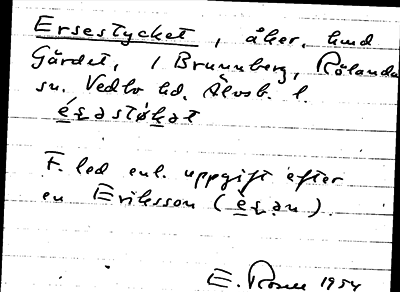 Ersestycket, åker, hmd
Gärdet, / Brunnberg, Rölanda
sn. Vedbo hd. Älvsb. l.
F. led enl. uppgift efter
en Eriksson
E. Rosen 1954